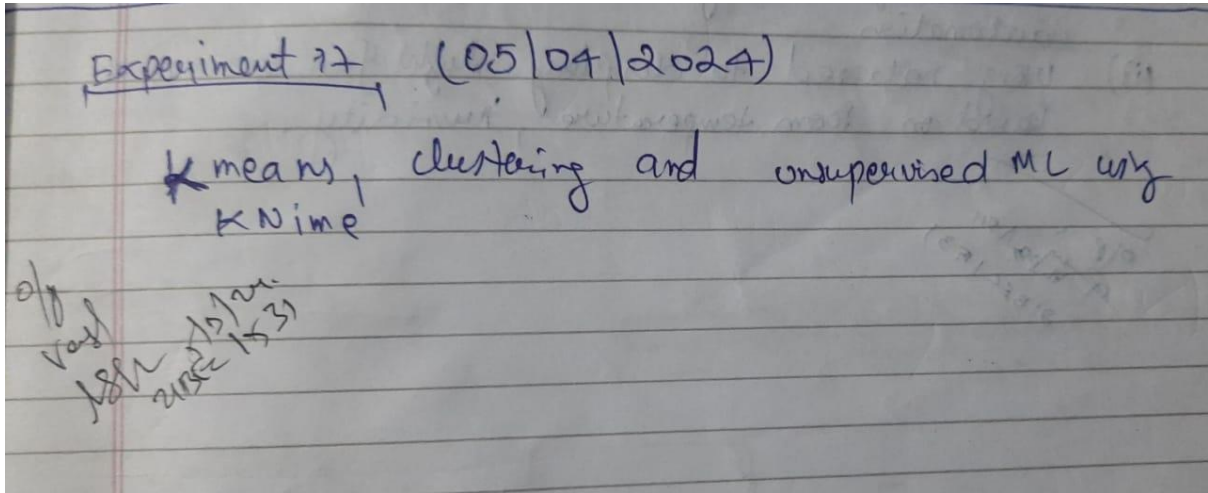 Experiment :7 (05/04/2024)
K means, clustering and unsupervised ML using
KNime
o/p